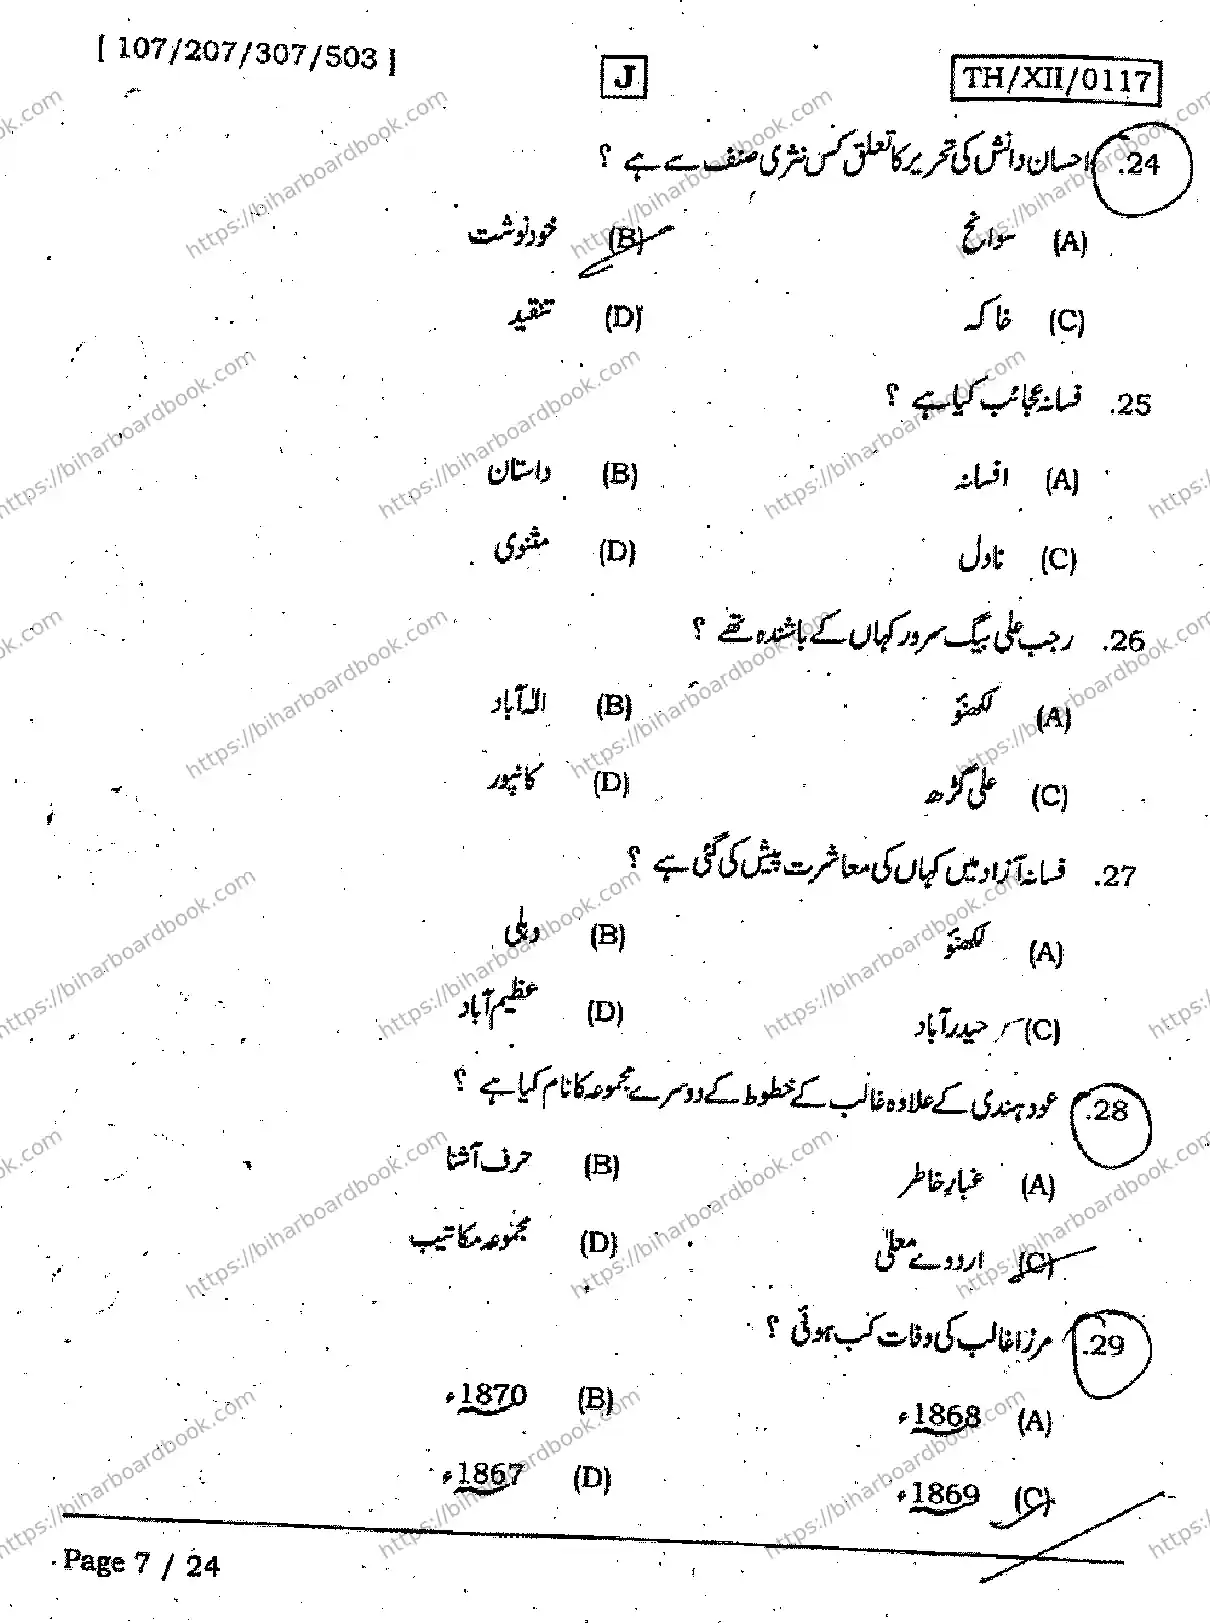 [ 107/207/307/503 ] J TH/XII/0117
24. احسان دانش کی تحریر کا تعلق کس نثری صنف سے ہے ؟
(A) سوانح (B) خودنوشت
(C) خاکہ (D) تنقید
25. فسانۂ عجائب کیا ہے ؟
(A) افسانہ (B) داستان
(C) ناول (D) مثنوی
26. رجب علی بیگ سرور کہاں کے باشندہ تھے ؟
(A) لکھنؤ (B) الہ آباد
(C) علی گڑھ (D) کانپور
27. فسانۂ آزاد میں کہاں کی معاشرت پیش کی گئی ہے ؟
(A) لکھنؤ (B) دہلی
(C) حیدرآباد (D) عظیم آباد
28. عود ہندی کے علاوہ غالب کے خطوط کے دوسرے مجموعہ کا نام کیا ہے ؟
(A) غبار خاطر (B) حرف آشنا
(C) اردوے معلیٰ (D) مجموعہ مکاتیب
29. مرزا غالب کی وفات کب ہوئی ؟
(A) 1868ء (B) 1870ء
(C) 1869ء (D) 1867ء
Page 7 / 24
https://biharboardbook.com